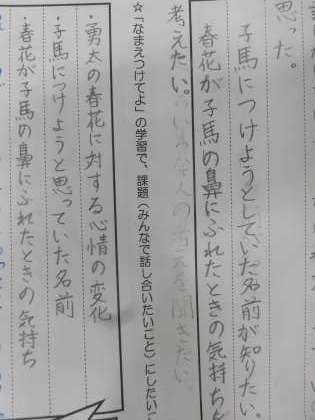 思った。
子馬につけようとしていた名前が知りたい
春花が子馬の鼻にふれたときの気持ちを
考えたい。
☆「なまえつけてよ」の学習で、課題（みんなで話し合いたいこと）にしたいこ
・勇太の春花に対する心情の変化
・子馬につけようと思っていた名前
・春花が子馬の鼻にふれたときの気持ち